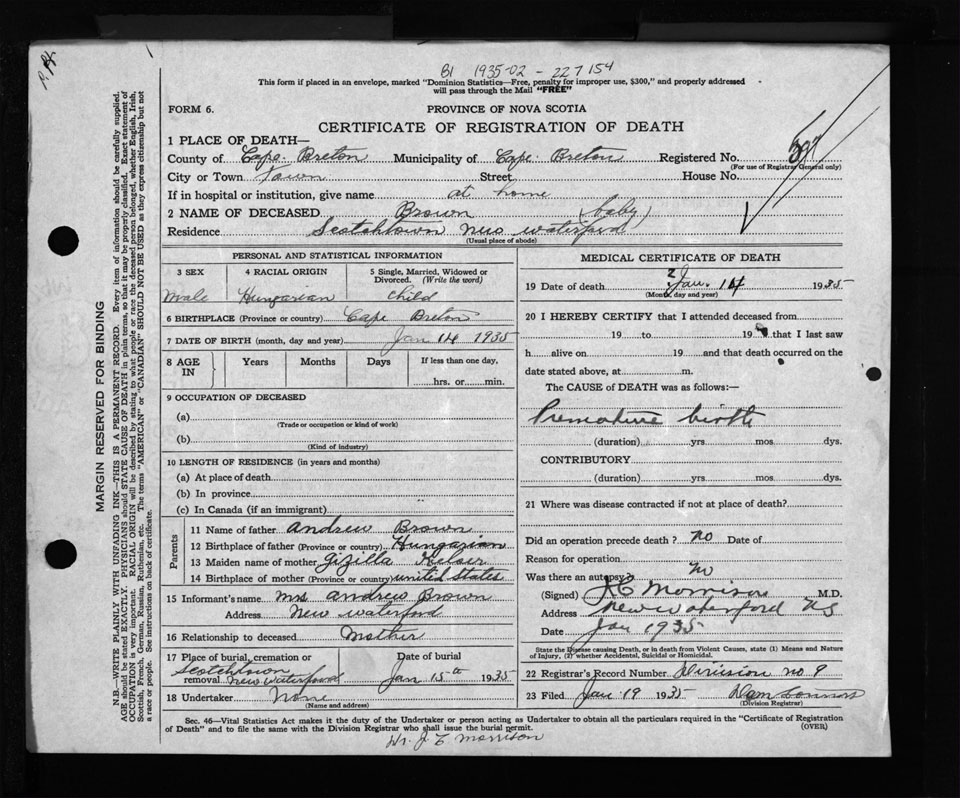 B1 1935-02-227154
This form if placed in an envelope, marked "Dominion Statistics—Free, penalty for improper use, $300," and properly addressed
will pass through the Mail "FREE"
FORM 6.
PROVINCE OF NOVA SCOTIA
CERTIFICATE OF REGISTRATION OF DEATH
1 PLACE OF DEATH—
County of Cape Breton Municipality of Cape Breton Registered No.
(For use of Registrar General only)
City or Town Town Street House No.
If in hospital or institution, give name at home
2 NAME OF DECEASED Brown (baby)
Residence Scotchtown New Waterford
(Usual place of abode)
PERSONAL AND STATISTICAL INFORMATION
3 SEX 4 RACIAL ORIGIN 5 Single, Married, Widowed or
Divorced. (Write the word)
Male Hungarian Child
6 BIRTHPLACE (Province or country) Cape Breton
7 DATE OF BIRTH (month, day and year) Jan 14 1935
8 AGE IN Years Months Days If less than one day,
hrs. or min.
9 OCCUPATION OF DECEASED
(a)
(Trade or occupation or kind of work)
(b)
(Kind of industry)
10 LENGTH OF RESIDENCE (in years and months)
(a) At place of death
(b) In province
(c) In Canada (if an immigrant)
Parents
11 Name of father Andrew Brown
12 Birthplace of father (Province or country) Hungarian
13 Maiden name of mother Gizilla
14 Birthplace of mother (Province or country) United States
15 Informant's name Mrs Andrew Brown
Address New Waterford
16 Relationship to deceased Mother
17 Place of burial, cremation or Date of burial
Scotchtown
removal New Waterford Jan 15th 1935
18 Undertaker None
(Name and address)
MEDICAL CERTIFICATE OF DEATH
19 Date of death Jan. 14 1935
(Month, day and year)
20 I HEREBY CERTIFY that I attended deceased from
19 to 19 that I last saw
h alive on 19 and that death occurred on the
date stated above, at m.
The CAUSE of DEATH was as follows:—
Premature birth
(duration) yrs mos dys.
CONTRIBUTORY
(duration) yrs. mos dys.
21 Where was disease contracted if not at place of death?
Did an operation precede death ? No Date of
Reason for operation
Was there an autopsy? No
(Signed) Morrison M.D.
Address New Waterford N S
Date Jan 1935
State the Disease causing Death, or in death from Violent Causes, state (1) Means and Nature
of Injury, (2) whether Accidental, Suicidal or Homicidal.
22 Registrar's Record Number Division no 9
23 Filed Jan 19 1935
(Division Registrar)
Sec. 46—Vital Statistics Act makes it the duty of the Undertaker or person acting as Undertaker to obtain all the particulars required in the "Certificate of Registration
of Death" and to file the same with the Division Registrar who shall issue the burial permit.
(OVER)
Dr. J. C Morrison
MARGIN RESERVED FOR BINDING
N.B.—WRITE PLAINLY WITH UNFADING INK—THIS IS A PERMANENT RECORD. Every item of information should be carefully supplied.
AGE should be stated EXACTLY. PHYSICIANS should STATE CAUSE OF DEATH in plain terms, so that it may be properly classified. Exact statement of
OCCUPATION is very important. RACIAL ORIGIN will be described by stating to what people or race the deceased person belonged, whether English, Irish,
Scottish, French, German, Russian, Ruthenian, etc. The terms "AMERICAN" or "CANADIAN" SHOULD NOT BE USED as they express citizenship but not
a race or people. See instructions on back of certificate.